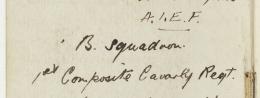 A.I.E.F.
B. Squadron.
1st Composite Cavarly Regt.